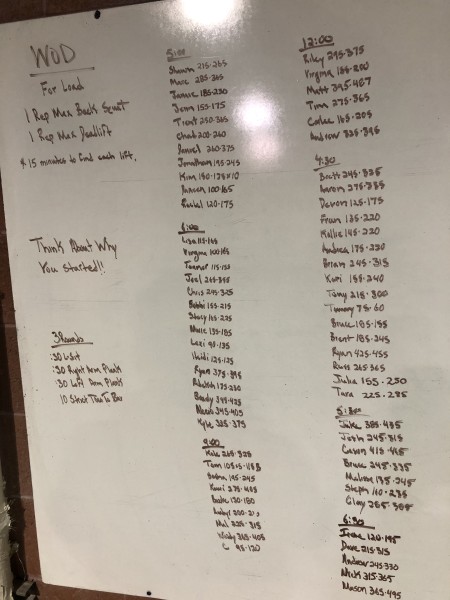 WOD
For Load
1 Rep Max Back Squat
1 Rep Max Deadlift
* 15 minutes to find each lift.
Think About Why
You started!!
3 Rounds
:30 L-Sit
:30 Right Arm Plank
:30 Left Arm Plank
10 Strict Toes To Bar
5:00
Shawn 215-265
Marc 285-365
Jamie 185-230
Jenn 155-175
Trent 250-365
Chad 205-260
Daniel 260-375
Jonathan 195-245
Kim
100-165
Rachel 120-175
6:00
Lisa
Virginia 100
Tanner 115-155
Joel
Chris 295-325
Bobbi 155-215
Stacy 165-225
Marie 135-185
Lexi 95-135
Heidi 125-125
Ryan 375-395
175-230
Brady
345-405
Kyle 325-375
9:00
Kole 265-325
Tom
Sasha 195-245
Kami 275-405
120-180
200-
Mel 225-315
Mindy 345-405
C 95-120
12:00
Riley 295-375
Virginia 155-200
Matt 395-467
Tim 275-365
165-205
Andrew 325-395
4:30
Brett 245-325
Aaron 275-385
Devon 125-175
Fran 165-220
Kallie 145-220
Andrea 175-230
Brian 245-315
Kari 155-240
Tony 215-300
Tommy 75-60
Bruce 185-155
Brent 185-245
Ryan 425-455
Russ 265-365
Julie 155-250
Tara 225-285
5:30
Jake 385-435
Josh 245-315
415-465
Bruce 245-335
Malissa 135-245
Steph 160-235
Clay 265-385
6:30
Irene 120-195
Dave 215-315
Andrew 245-330
Nick 315-365
Mason 365-495